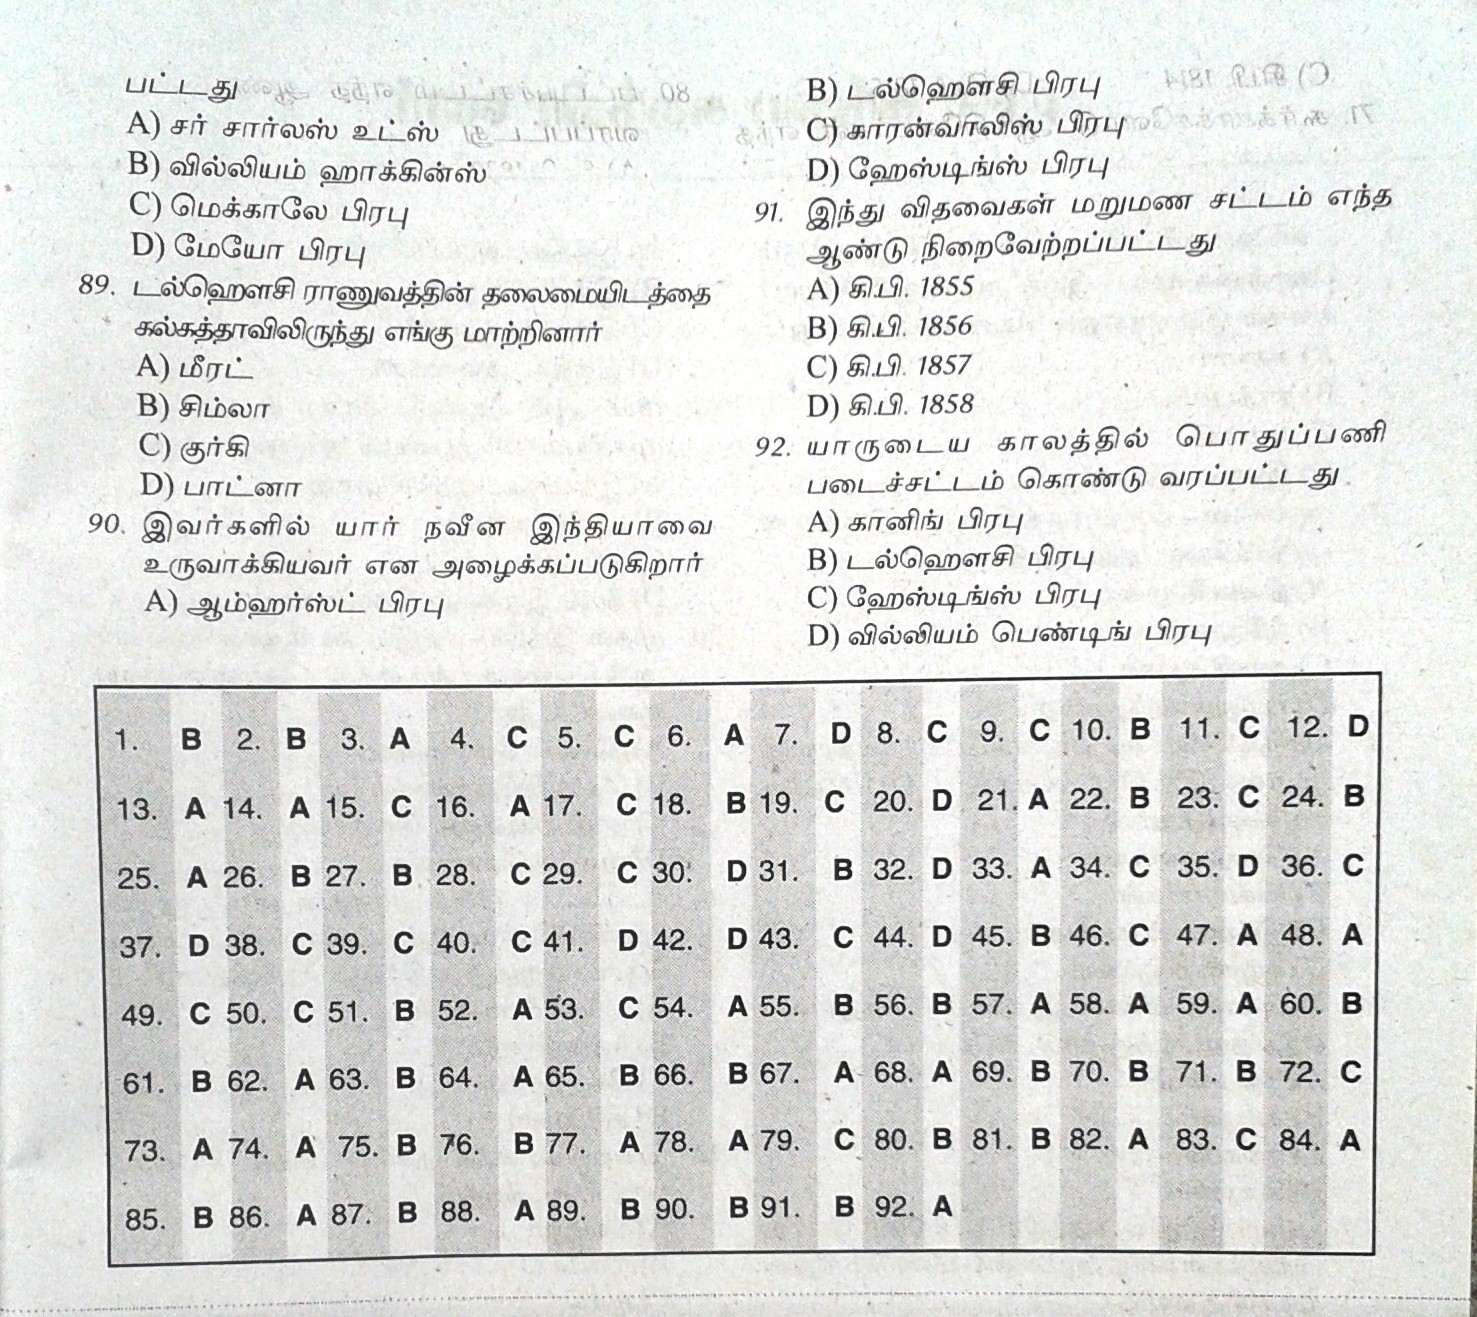 பட்டது
A) சர் சார்லஸ் உட்ஸ்
B) வில்லியம் ஹாக்கின்ஸ்
C) மெக்காலே பிரபு
D) மேயோ பிரபு
89. டல்ஹௌசி ராணுவத்தின் தலைமையிடத்தை
கல்கத்தாவிலிருந்து எங்கு மாற்றினார்
A) மீரட்
B) சிம்லா
C) குர்கி
D) பாட்னா
90. இவர்களில் யார் நவீன இந்தியாவை
உருவாக்கியவர் என அழைக்கப்படுகிறார்
A) ஆம்ஹர்ஸ்ட் பிரபு
B) டல்ஹௌசி பிரபு
C) காரன்வாலிஸ் பிரபு
D) ஹேஸ்டிங்ஸ் பிரபு
91. இந்து விதவைகள் மறுமண சட்டம் எந்த
ஆண்டு நிறைவேற்றப்பட்டது
A) கி.பி. 1855
B) கி.பி. 1856
C) கி.பி. 1857
D) கி.பி. 1858
92. யாருடைய காலத்தில் பொதுப்பணி
படைச்சட்டம் கொண்டு வரப்பட்டது
A) கானிங் பிரபு
B) டல்ஹௌசி பிரபு
C) ஹேஸ்டிங்ஸ் பிரபு
D) வில்லியம் பெண்டிங் பிரபு
1. B 2. B 3. A 4. C 5. C 6. A 7. D 8. C 9. C 10. B 11. C 12. D
13. A 14. A 15. C 16. A 17. C 18. B 19. C 20. D 21. A 22. B 23. C 24. B
25. A 26. B 27. B 28. C 29. C 30. D 31. B 32. D 33. A 34. C 35. D 36. C
37. D 38. C 39. C 40. C 41. D 42. D 43. C 44. D 45. B 46. C 47. A 48. A
49. C 50. C 51. B 52. A 53. C 54. A 55. B 56. B 57. A 58. A 59. A 60. B
61. B 62. A 63. B 64. A 65. B 66. B 67. A 68. A 69. B 70. B 71. B 72. C
73. A 74. A 75. B 76. B 77. A 78. A 79. C 80. B 81. B 82. A 83. C 84. A
85. B 86. A 87. B 88. A 89. B 90. B 91. B 92. A